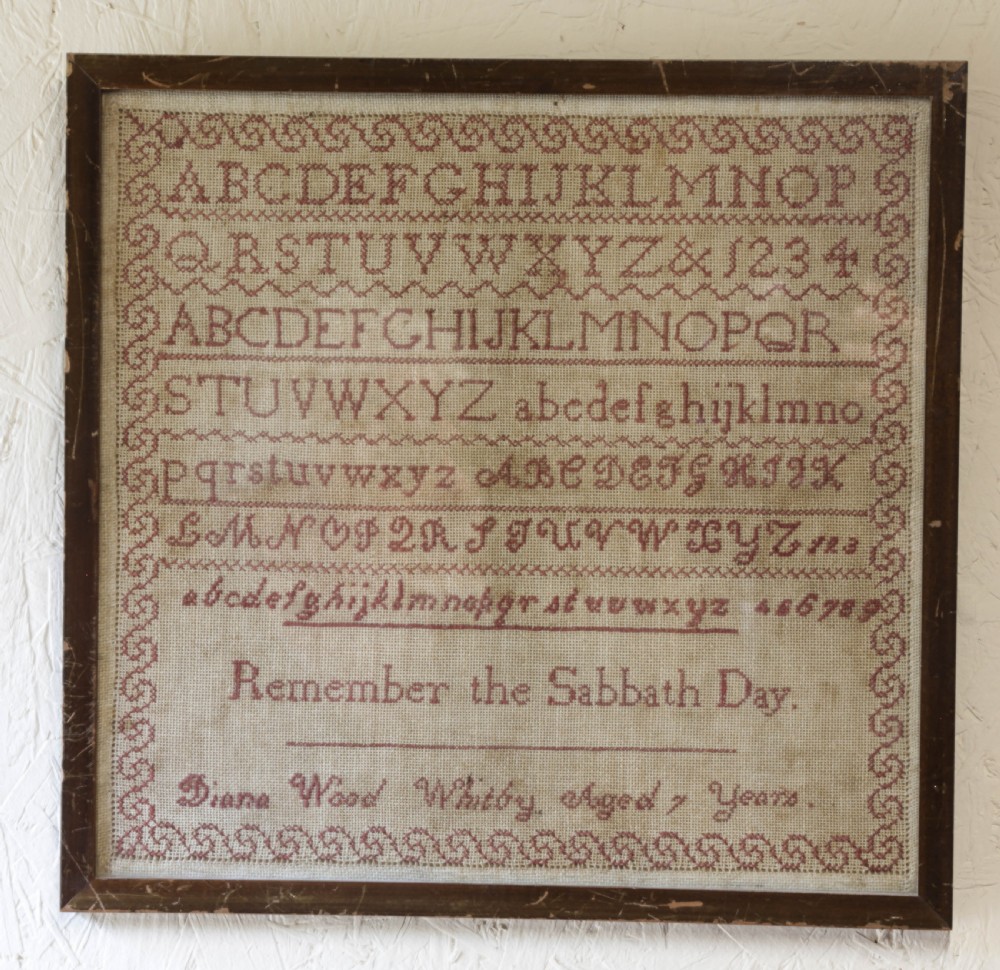 ABCDEFGHIJKLMNOP
QRSTUVWXYZ&1234
ABCDEFGHIJKLMNOPQR
STUVWXYZ abcdefghijklmno
pqrstuvwxyz ABCDEFGHIJK
LMNOPQRSTUVWXYZ 123
abcdefghijklmnopqrstuvwxyz 456789
Remember the Sabbath Day.
Diana Wood Whitby. Aged 7 Years.